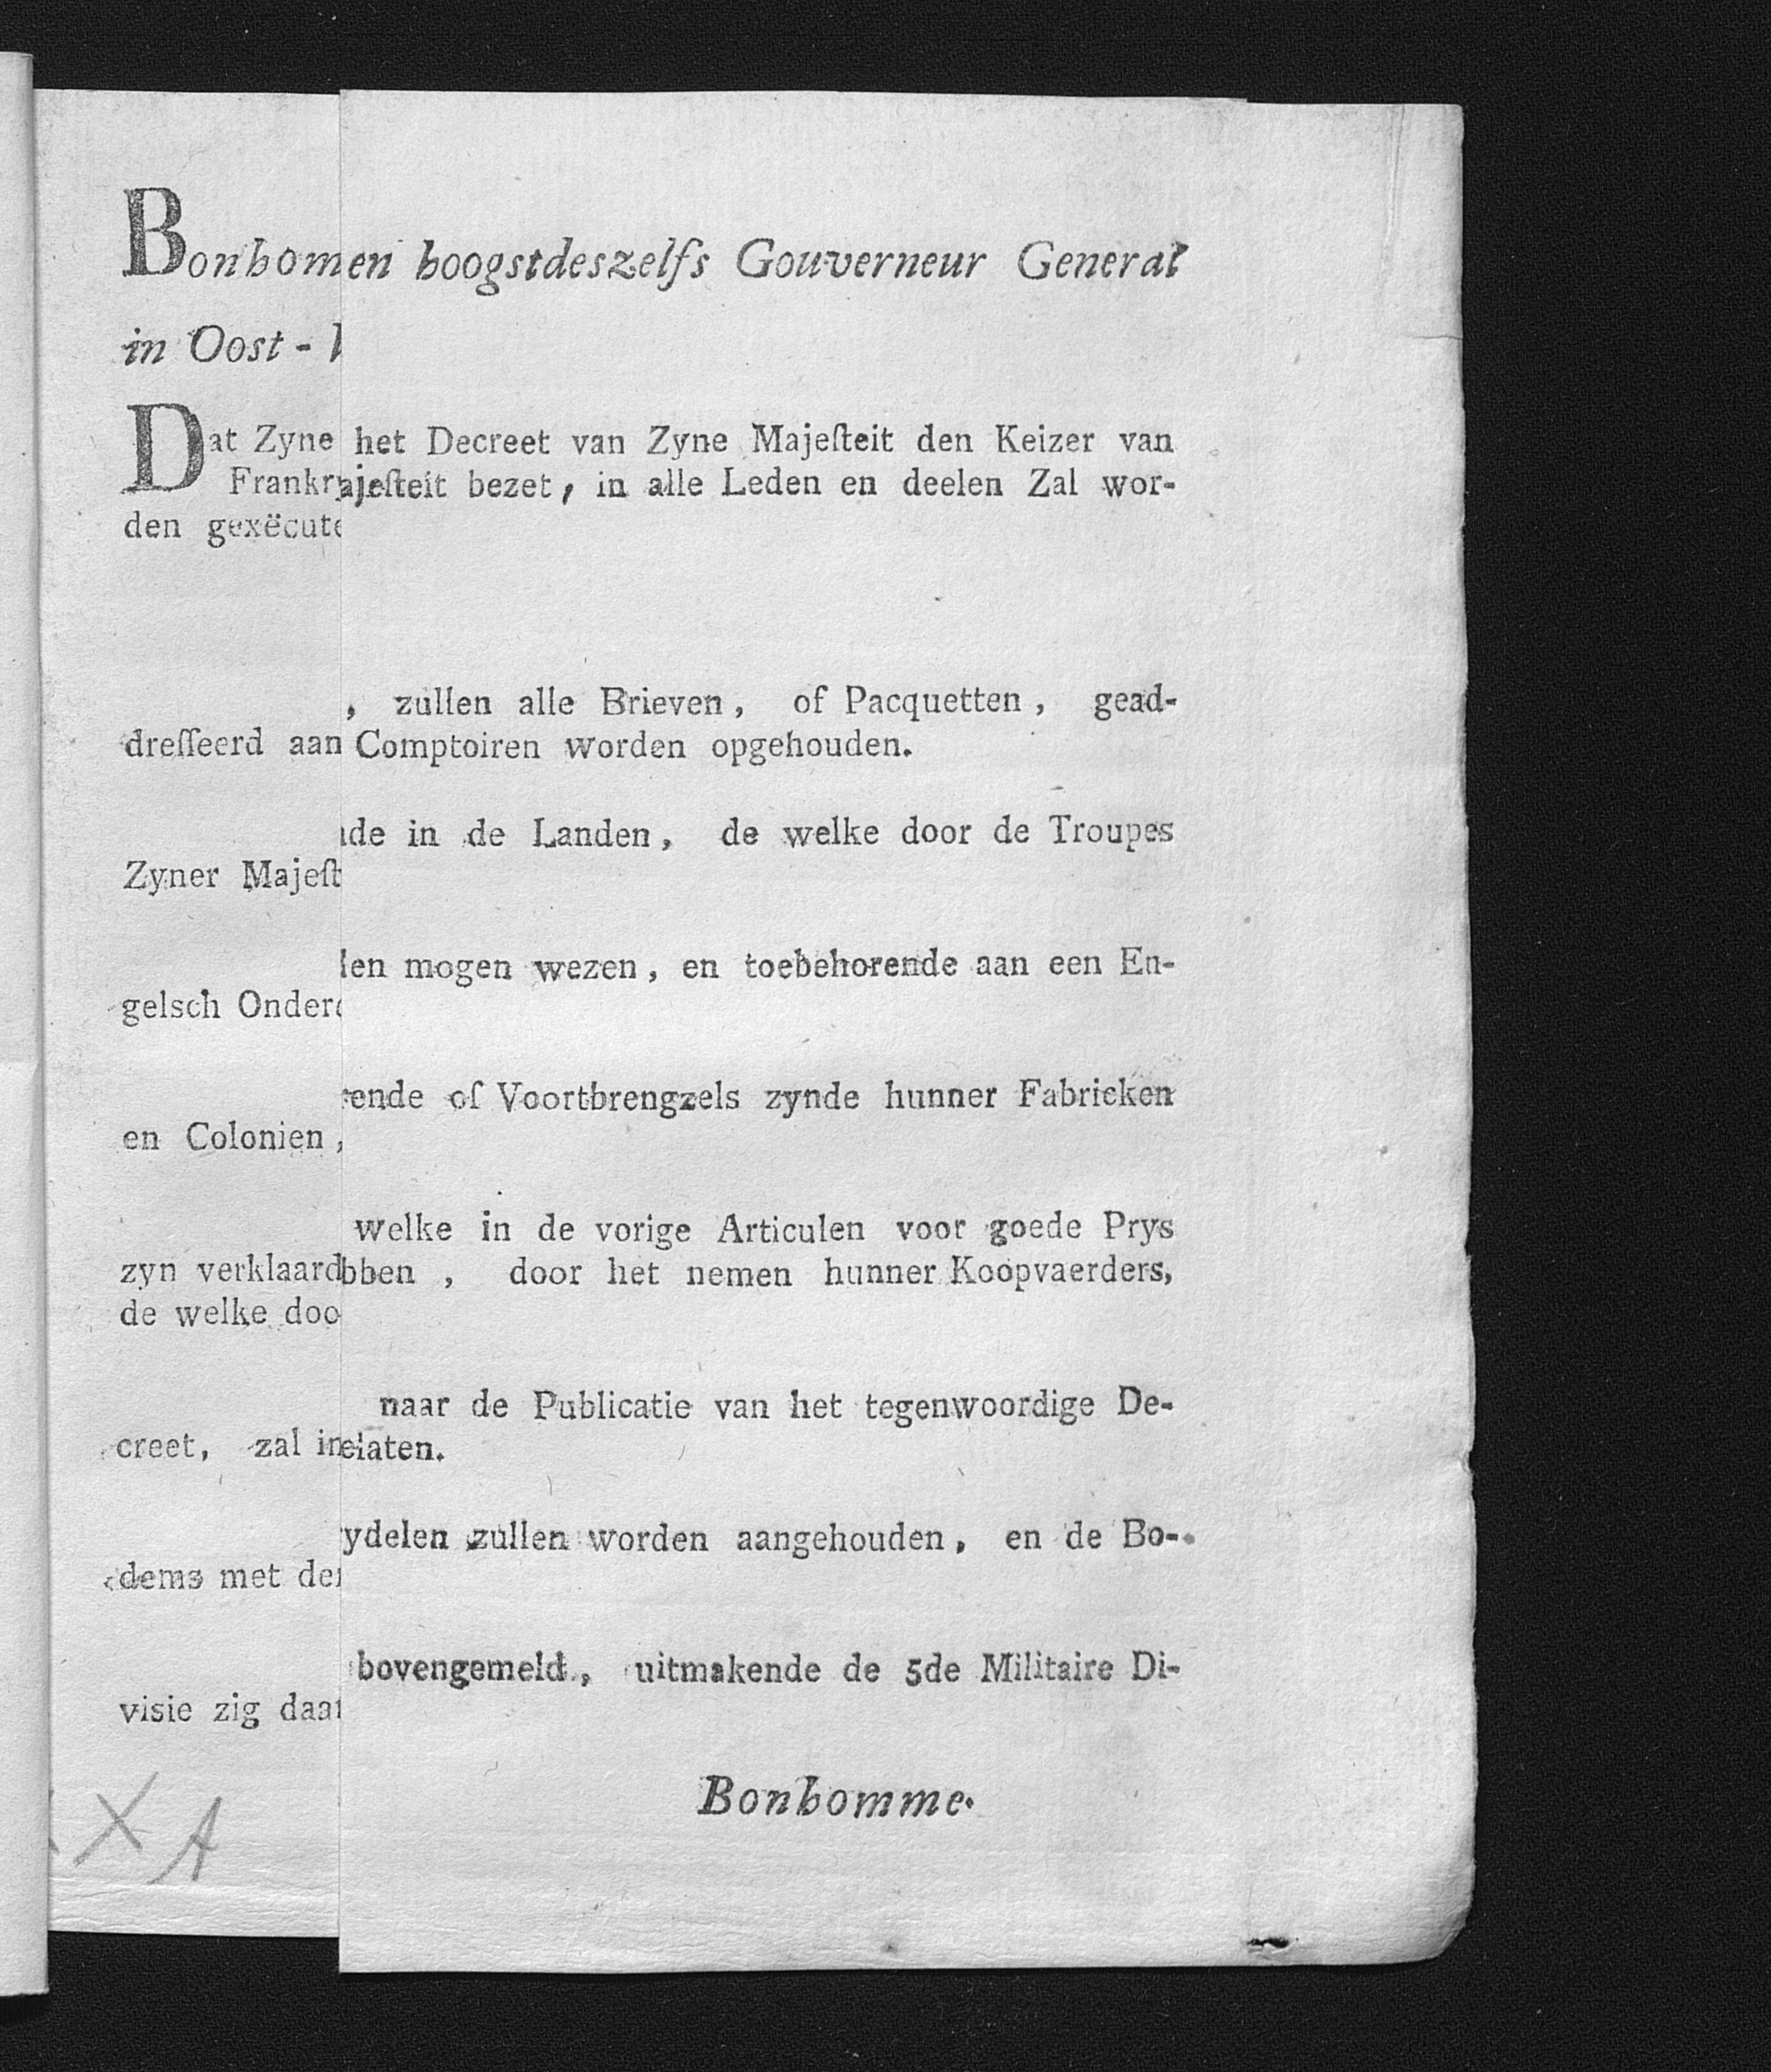 Bonhomen hoogstdeszelfs Gouverneur General
in Oost -
Dat Zyne het Decreet van Zyne Majeſteit den Keizer van
Frankrajeſteit bezet, in alle Leden en deelen Zal wor-
den gexëcute
, zullen alle Brieven, of Pacquetten, gead-
dreſſeerd aan Comptoiren worden opgehouden.
de in de Landen, de welke door de Troupes
Zyner Majeſt
len mogen wezen, en toebehorende aan een En-
gelsch Onder
ende of Voortbrengzels zynde hunner Fabricken
en Colonien,
welke in de vorige Articulen voor goede Prys
zyn verklaardbben, door het nemen hunner Koopvaerders,
de welke doo
naar de Publicatie van het tegenwoordige De-
creet, zal inelaten.
ydelen zullen worden aangehouden, en de Bo-
dems met de
bovengemeld, uitmakende de 5de Militaire Di-
visie zig daa
Bonhomme.
X A